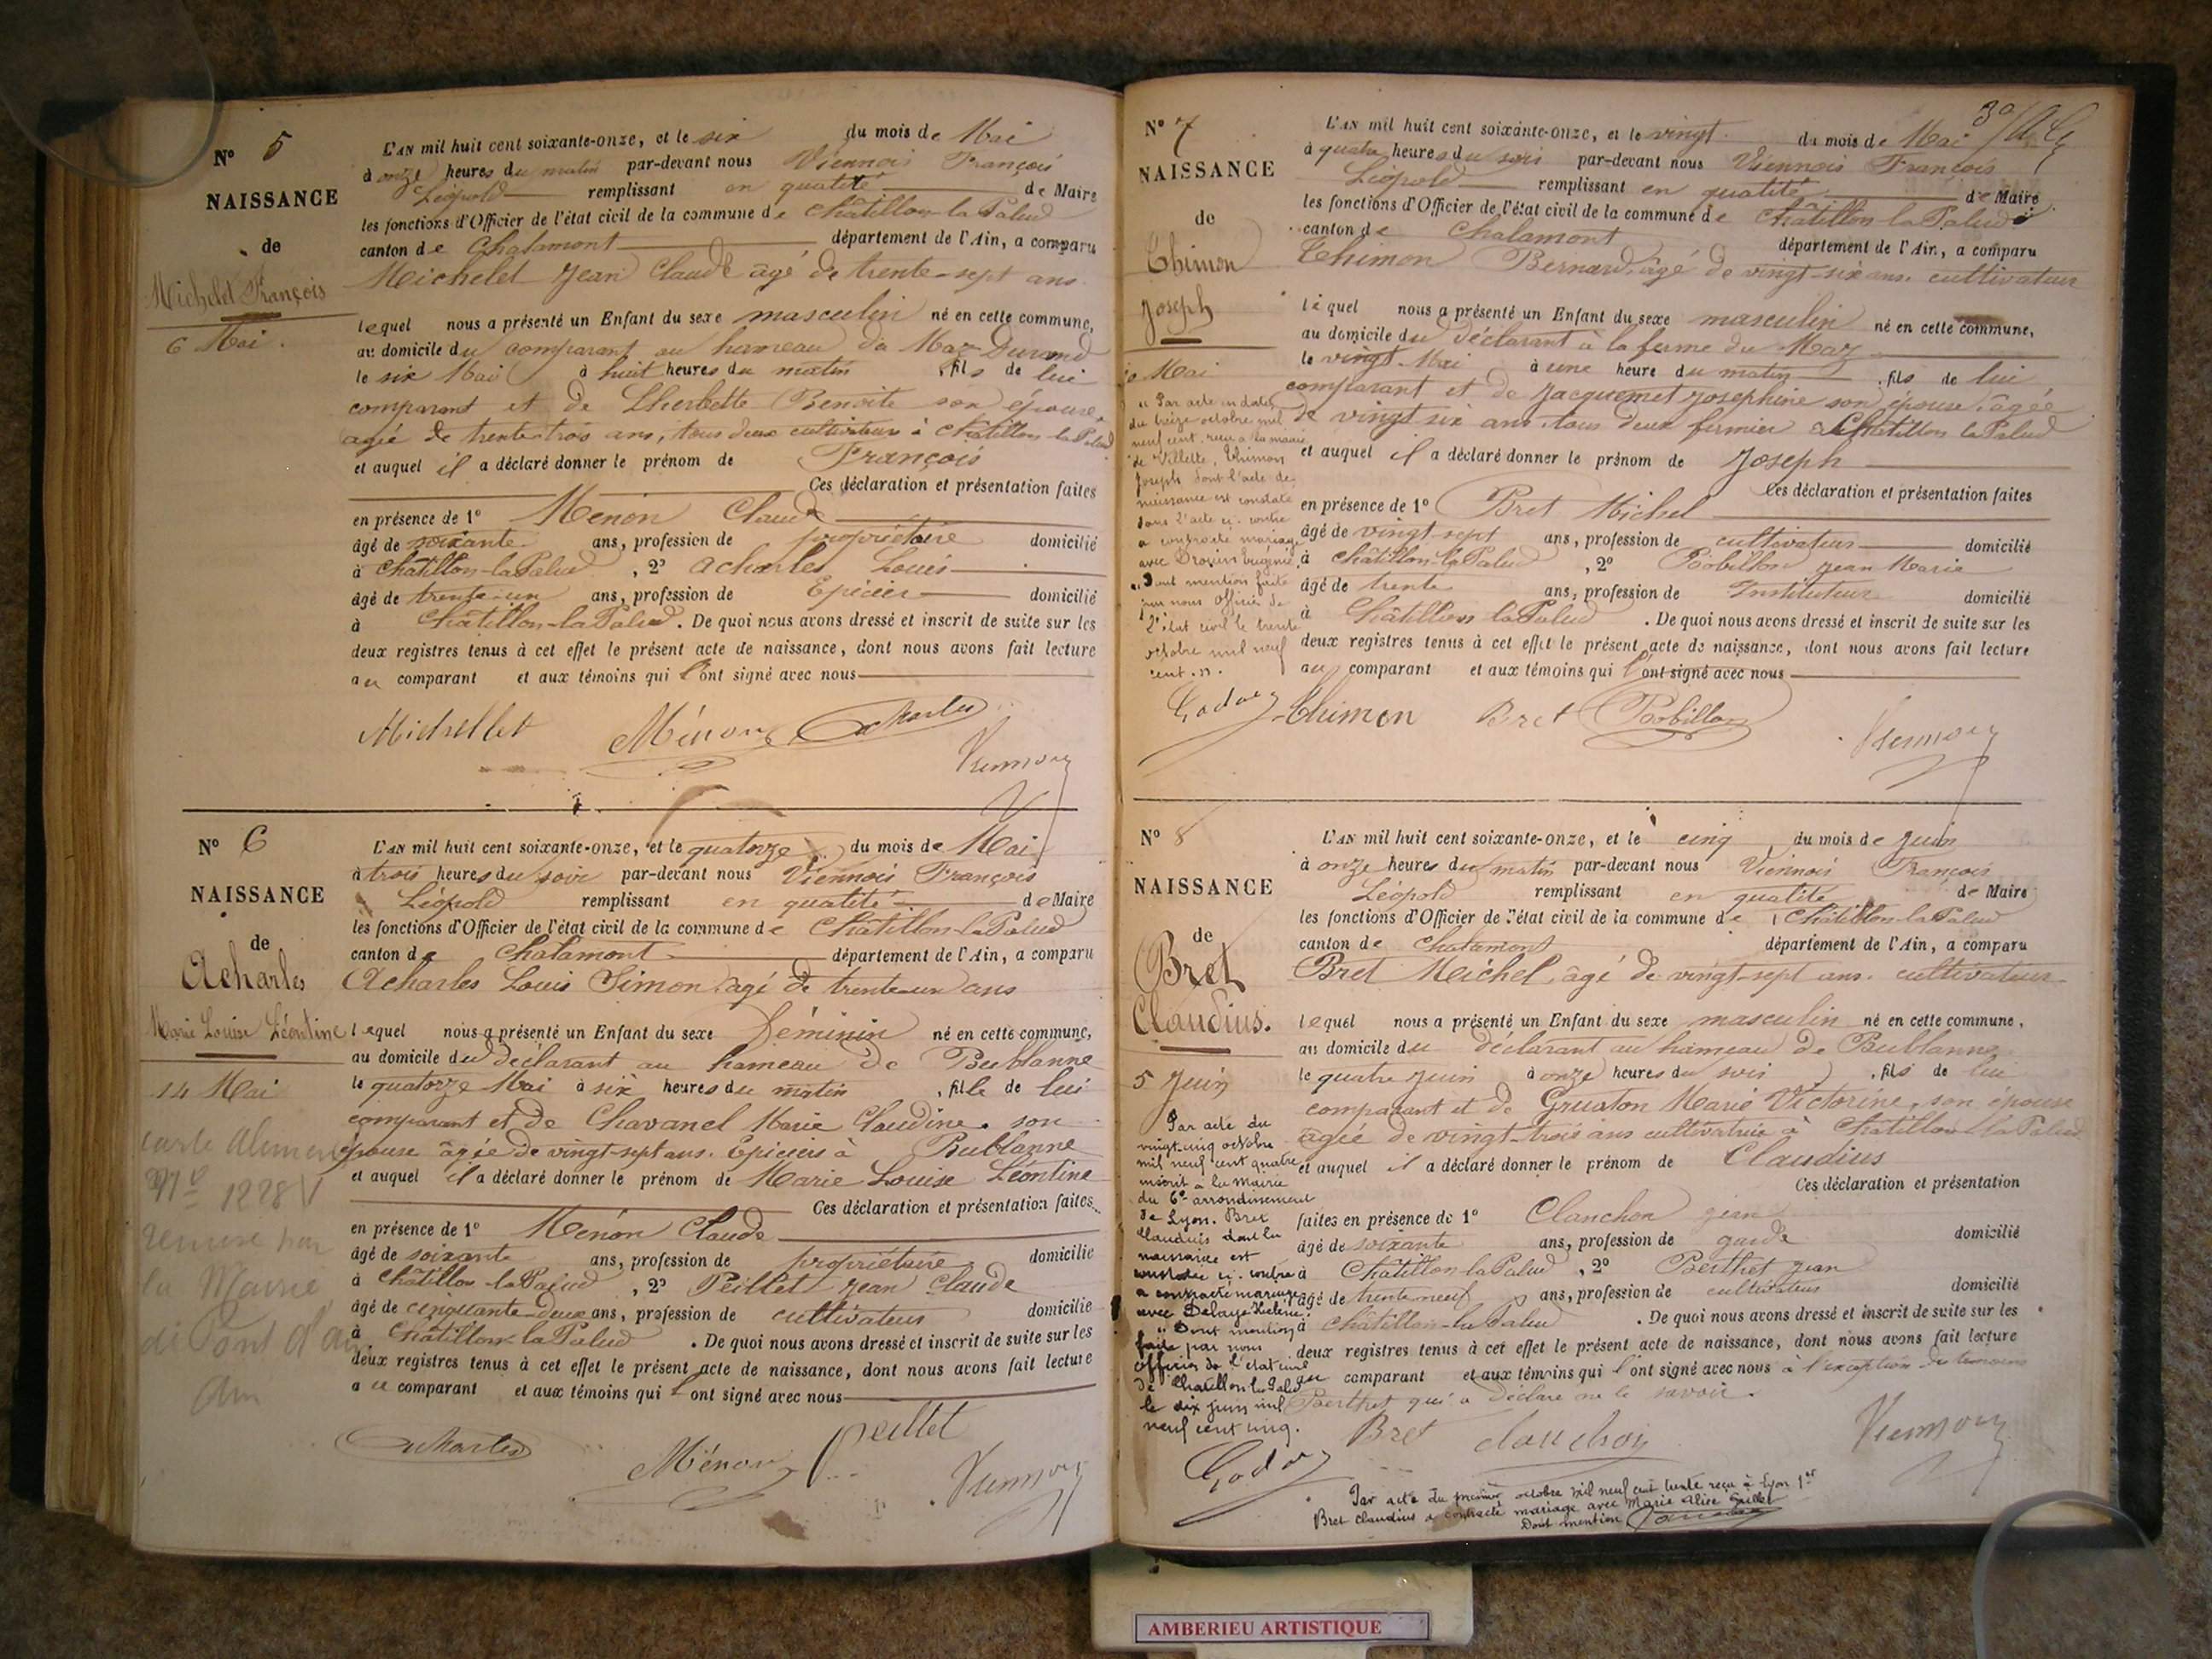 N° 5
NAISSANCE
de
Michelet François
6 Mai.
L'AN mil huit cent soixante-onze, et le six du mois de Mai
à onze heures du matin par-devant nous Viennois François
Léopold remplissant en qualité de Maire
les fonctions d'Officier de l'état civil de la commune de Châtillon-la-Palud
canton de Chalamont département de l'Ain, a comparu
Michelet Jean Claude âgé de trente-sept ans
lequel nous a présenté un Enfant du sexe masculin né en cette commune,
au domicile du comparant au hameau du Maz-Durand
le six Mai à huit heures du matin, fils de lui
comparant et de Lherbette Benoite son épouse
agée de trente-trois ans, tous deux cultivateurs à Châtillon-la-Palud
et auquel il a déclaré donner le prénom de François
Ces déclaration et présentation faites
en présence de 1° Menon Claude
âgé de soixante ans, profession de propriétaire domicilié
à Châtillon-la-Palud, 2° Acharles Louis
âgé de trente-un ans, profession de Epicier domicilié
à Châtillon-la-Palud. De quoi nous avons dressé et inscrit de suite sur les
deux registres tenus à cet effet le présent acte de naissance, dont nous avons fait lecture
au comparant et aux témoins qui l'ont signé avec nous
Michellet Ménon Acharles
Viennois
N° 6
NAISSANCE
de
Acharles
Marie Louise Léontine
14 Mai
carte
N° 1228
remise par
la Mairie
de Pont d'ain
Ain
L'AN mil huit cent soixante-onze, et le quatorze du mois de Mai
à trois heures du soir par-devant nous Viennois François
Léopold remplissant en qualité de Maire
les fonctions d'Officier de l'état civil de la commune de Châtillon-la-Palud
canton de Chalamont département de l'Ain, a comparu
Acharles Louis Simon agé de trente-un ans
lequel nous a présenté un Enfant du sexe Féminin né en cette commune,
au domicile du déclarant au hameau de Bublanne
le quatorze Mai à six heures du matin, fille de lui
comparant et de Chavanel Marie Claudine son
épouse âgée de vingt-sept ans. Epiciers à Bublanne
et auquel il a déclaré donner le prénom de Marie Louise Léontine
Ces déclaration et présentation faites
en présence de 1° Menon Claude
âgé de soixante ans, profession de propriétaire domicilié
à Châtillon-la-Palud, 2° Peillet Jean Claude
âgé de cinquante-deux ans, profession de cultivateur domicilié
à Châtillon-la-Palud. De quoi nous avons dressé et inscrit de suite sur les
deux registres tenus à cet effet le présent acte de naissance, dont nous avons fait lecture
au comparant et aux témoins qui l'ont signé avec nous
Acharles Ménon Peillet
Viennois
N° 7
NAISSANCE
de
Thimon
Joseph
20 Mai
"Par acte en date
du treize octobre mil
neuf cent, reçu à la mairie
de Villette, Thimon
Joseph dont l'acte de
naissance est constaté
dans l'acte ci-contre
a contracté mariage
avec Drouin Eugénie.
"Dont mention faite
par nous Officier de
l'état civil le trente
octobre mil neuf
cent."
L'AN mil huit cent soixante-onze, et le vingt du mois de Mai
à quatre heures du soir par-devant nous Viennois François
Léopold remplissant en qualité de Maire
les fonctions d'Officier de l'état civil de la commune de Châtillon-la-Palud
canton de Chalamont département de l'Ain, a comparu
Thimon Bernard, âgé de vingt-six ans. cultivateur
lequel nous a présenté un Enfant du sexe masculin né en cette commune,
au domicile du déclarant à la ferme du Maz
le vingt-Mai à une heure du matin, fils de lui
comparant et de Jacquemet Josephine son épouse, âgée
de vingt-six ans tous deux fermier à Châtillon-la-Palud
et auquel il a déclaré donner le prénom de Joseph
Ces déclaration et présentation faites
en présence de 1° Bret Michel
âgé de vingt-sept ans, profession de cultivateur domicilié
à Châtillon-la-Palud, 2° Robillon Jean Marie
âgé de trente ans, profession de Instituteur domicilié
à Châtillon-la-Palud. De quoi nous avons dressé et inscrit de suite sur les
deux registres tenus à cet effet le présent acte de naissance, dont nous avons fait lecture
au comparant et aux témoins qui l'ont signé avec nous
Godoz Thimon Bret Robillon
Viennois
N° 8
NAISSANCE
de
Bret
Claudius.
5 Juin
Par acte du
vingt-cinq octobre
mil neuf cent quatre
inscrit à la Mairie
du 6e arrondissement
de Lyon. Bret
Claudius dont la
naissance est
constatée ci-contre
a contracté mariage
avec Delaye Hélène.
"Dont mention
faite par nous
officier de l'état civil
de Châtillon-la-Palud
le dix juin mil
neuf cent cinq.
Godoz
L'AN mil huit cent soixante-onze, et le cinq du mois de Juin
à onze heures du matin par-devant nous Viennois François
Léopold remplissant en qualité de Maire
les fonctions d'Officier de l'état civil de la commune de Châtillon-la-Palud
canton de Chalamont département de l'Ain, a comparu
Bret Michel, âgé de vingt-sept ans. cultivateur
lequel nous a présenté un Enfant du sexe masculin né en cette commune,
au domicile du déclarant au hameau de Bublanne
le quatre Juin à onze heures du soir, fils de lui
comparant et de Gruaton Marie Victorine, son épouse
agée de vingt-trois ans cultivatrice à Châtillon-la-Palud
et auquel il a déclaré donner le prénom de Claudius
Ces déclaration et présentation
faites en présence de 1° Clanchon Jean
âgé de soixante ans, profession de garde domicilié
à Châtillon-la-Palud, 2° Berthet Jean
âgé de trente-neuf ans, profession de cultivateur domicilié
à Châtillon-la-Palud. De quoi nous avons dressé et inscrit de suite sur les
deux registres tenus à cet effet le présent acte de naissance, dont nous avons fait lecture
au comparant et aux témoins qui l'ont signé avec nous à l'exception du temoins
Berthet qui a déclaré ne le savoir.
Bret Clanchon Viennois
Par acte du premier octobre mil neuf cent trente reçu à Lyon 1er
Bret Claudius a contracté mariage avec Marie Alice
Dont mention
AMBERIEU ARTISTIQUE